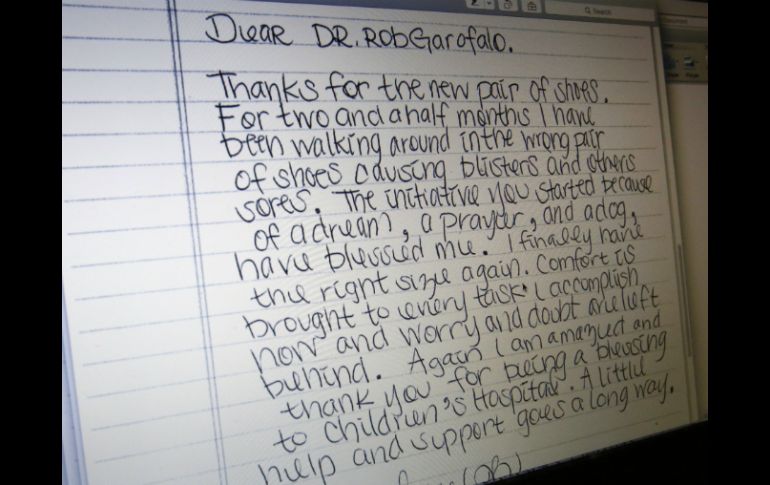 Search
Dear DR. Rob Garofalo.
Thanks for the new pair of shoes.
For two and a half months I have
been walking around in the wrong pair
of shoes causing blisters and others
sores. The initiative you started because
of a dream, a prayer, and a dog,
have blessed me. I finally have
the right size again. Comfort is
brought to every task I accomplish
now and worry and doubt are left
behind. Again I am amazed and
thank you for being a blessing
to Children's Hospital. A little
help and support goes a long way.